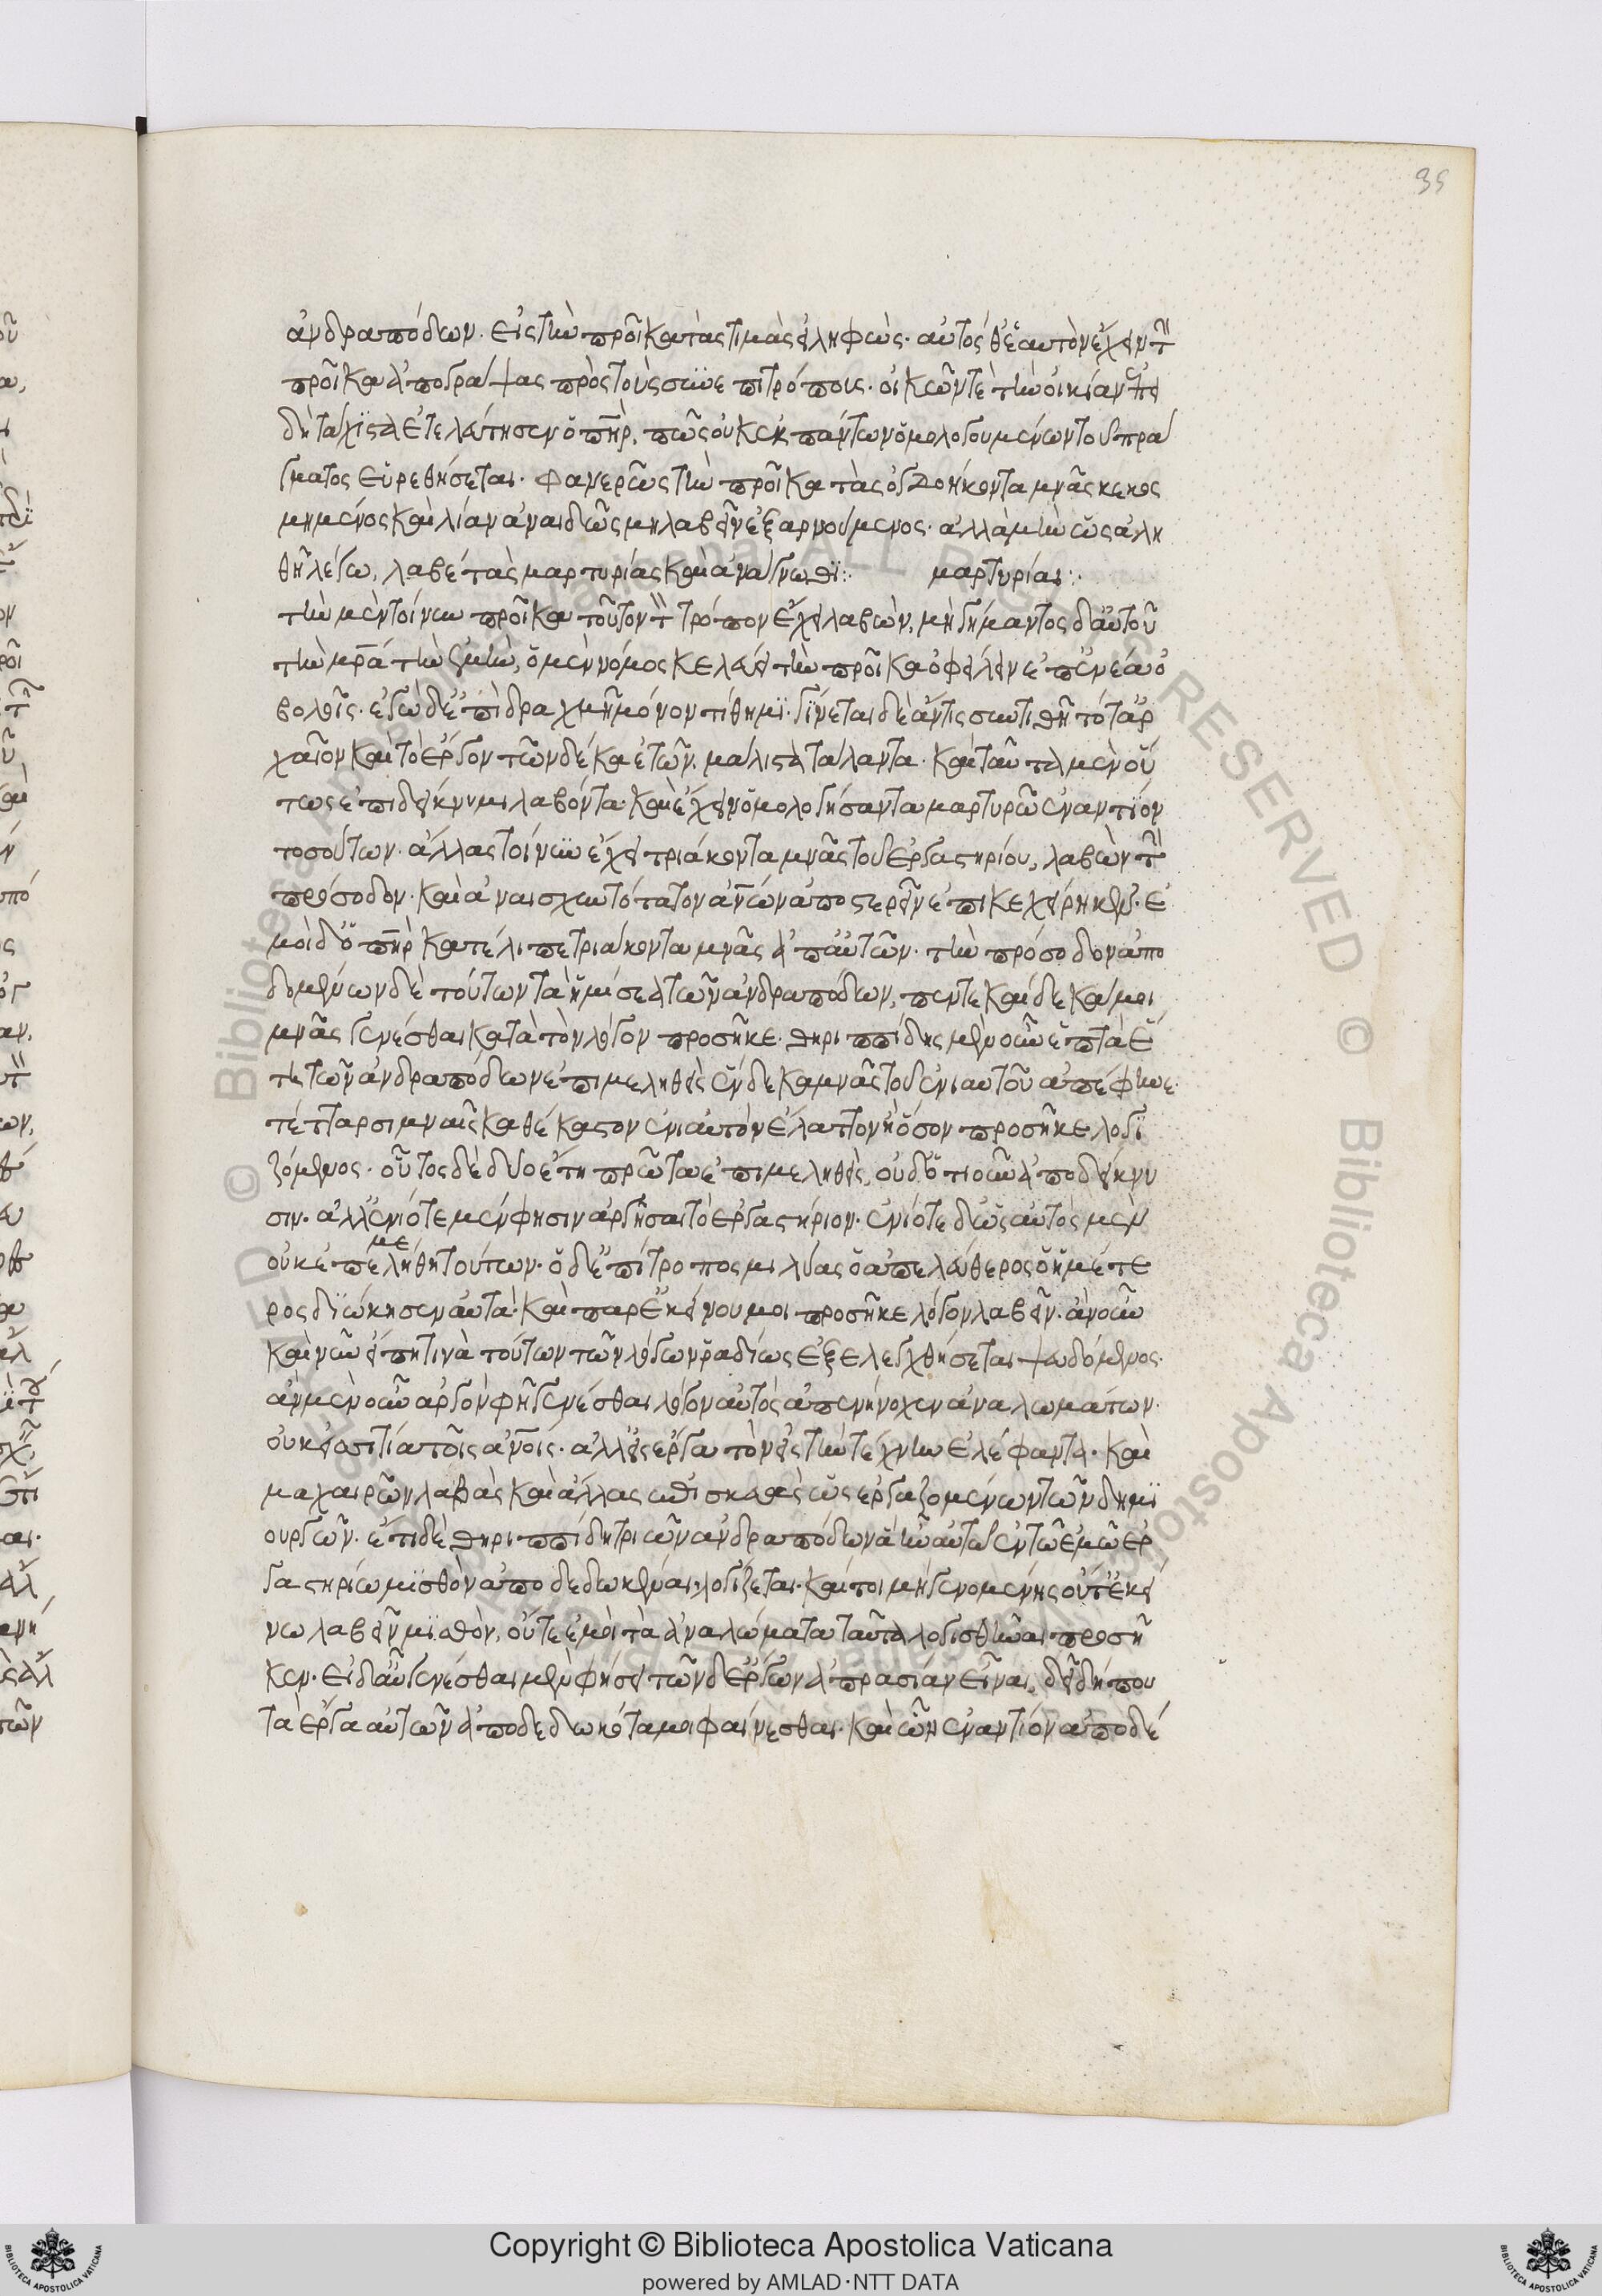 35
ἀνδραπόδων. εἰς τὴν προῖκα τὰς τιμὰς εἰληφὼς. αὐτός θ' ἑαυτὸν ἔχειν τ
προῖκα ἀπογράψας πρὸς τοὺς συνεπιτρόπους. οἰκῶν τὲ τὴν οἰκίαν ἐπει
δὴ τάχιστα ἐτελεύτησεν ὁ πηρ, πῶς οὐκ ἐκ πάντων ὁμολογουμένων τοῦ πρά
γματος εὑρεθήσεται. φανερῶς τὴν προῖκα τὰς ὀγδοήκοντα μνᾶς κεκος
μημένος καὶ λίαν ἀναιδῶς μὴ λαβεῖν ἐξαρνούμενος. ἀλλὰ μὴν ὡς ἀλη
θῆ λέγω, λαβὲ τὰς μαρτυρίας καὶ ἀνάγνωθι: μαρτυρίαι:
τὴν μὲν τοίνυν προῖκα τοῦτον τ τρόπον ἔχει λαβὼν, μὴ γήμαντος δ' αὐτοῦ
τὴν μρα τὴν ἐμὴν, ὁ μὲν νόμος κελεύει τὴν προῖκα ὀφείλειν ἐπ' ἐννέα ὀ
βολοῖς. ἐγὼ δ' ἐπὶ δραχμῇ μόνον τίθημι. γίνεται δὲ ἄν τις συντιθῇ τό τ' ἀρ
χαῖον καὶ τὸ ἔργον τῶν δέκα ἐτῶν. μάλιστα τάλαντα. καὶ ταῦτα μὲν οὕ
τως ἐπιδείκνυμι λαβόντα. καὶ ἔχειν ὁμολογήσαντα μαρτυρῶ ἐναντίον
τοσούτων. ἄλλας τοίνυν ἔχει τριάκοντα μνᾶς τοῦ ἐργαστηρίου, λαβὼν τ
πρόσοδον. καὶ ἀναισχυντότατον ἀνων ἀποστερεῖν ἐπικεχείρηκεν. ἐ
μοὶ δ' ὁ πηρ κατέλιπε τριάκοντα μνᾶς ἀπ' αὐτῶν. τὴν πρόσοδον ἀπο
δομένων δὲ τούτων τὰ ἡμίσεα τῶν ἀνδραπόδων, πεντεκαίδεκά μοι
μνᾶς γενέσθαι κατὰ τὸν λόγον προσῆκε. θηριππίδης μὲν οὖν ἑπτὰ ἔ
τη τῶν ἀνδραπόδων ἐπιμεληθεὶς ἕνδεκα μνᾶς τοῦ ἐνιαυτοῦ ἀπέφηνε.
τέτταρσι μναῖς καθ' ἕκαστον ἐνιαυτὸν ἔλαττον ἢ ὅσον προσῆκε λογι
ζόμενος. οὗτος δὲ δύο ἔτη πρῶτον ἐπιμεληθεὶς, οὐδ' ὁτιοῦν ἀποδείκνυ
σιν. ἀλλ' ἐνίοτε μέν φησιν ἀργῆσαι τὸ ἐργαστήριον. ἐνίοτε δ' ὡς αὐτὸς μὲν
οὐκ ἐπεμελήθη τούτων. ὁ δ' ἐπίτροπος μιλύας ὁ ἀπελεύθερος ὁ ἡμέτε
ρος διῴκησεν αὐτά. καὶ παρ' ἐκείνου μοι προσῆκε λόγον λαβεῖν. ἂν οὖν
καὶ νῦν εἴπῃ τινὰ τούτων τῶν λόγων ῥᾳδίως ἐξελεγχθήσεται ψευδόμενος.
ἂν μὲν οὖν ἀργὸν φῇ γενέσθαι λόγον αὐτὸς ἀπενήνοχεν ἀναλωμάτων.
οὐκ εἰς σιτία τοῖς ἀνοις. ἀλλ' εἰς ἔργα τὸν εἰς τὴν τέχνην ἐλέφαντα. καὶ
μαχαιρῶν λαβὰς καὶ ἄλλας ἐπισκευὰς ὡς ἐργαζομένων τῶν δημι
ουργῶν. ἔτι δὲ θηριππίδῃ τριῶν ἀνδραπόδων ἃ ἦν αὐτῷ ἐν τῷ ἐμῷ ἐρ
γαστηρίῳ μισθὸν ἀποδεδωκέναι λογίζεται. καίτοι μὴ γενομένης οὔτ' ἐκεί
νῳ λαβεῖν μισθὸν, οὔτε ἐμοὶ τὰ ἀναλώματα ταῦτα λογισθῆναι προσῆ
κεν. εἰ δ' αὖ γενέσθαι μὲν φήσει τῶν δ' ἔργων ἀπρασίαν εἶναι, δεῖ δήπου
τὰ ἔργα αὐτῶν ἀποδεδωκότα μοι φαίνεσθαι. καὶ ὧν ἐναντίον ἀπέδω
Copyright © Biblioteca Apostolica Vaticana
powered by AMLAD·NTT DATA